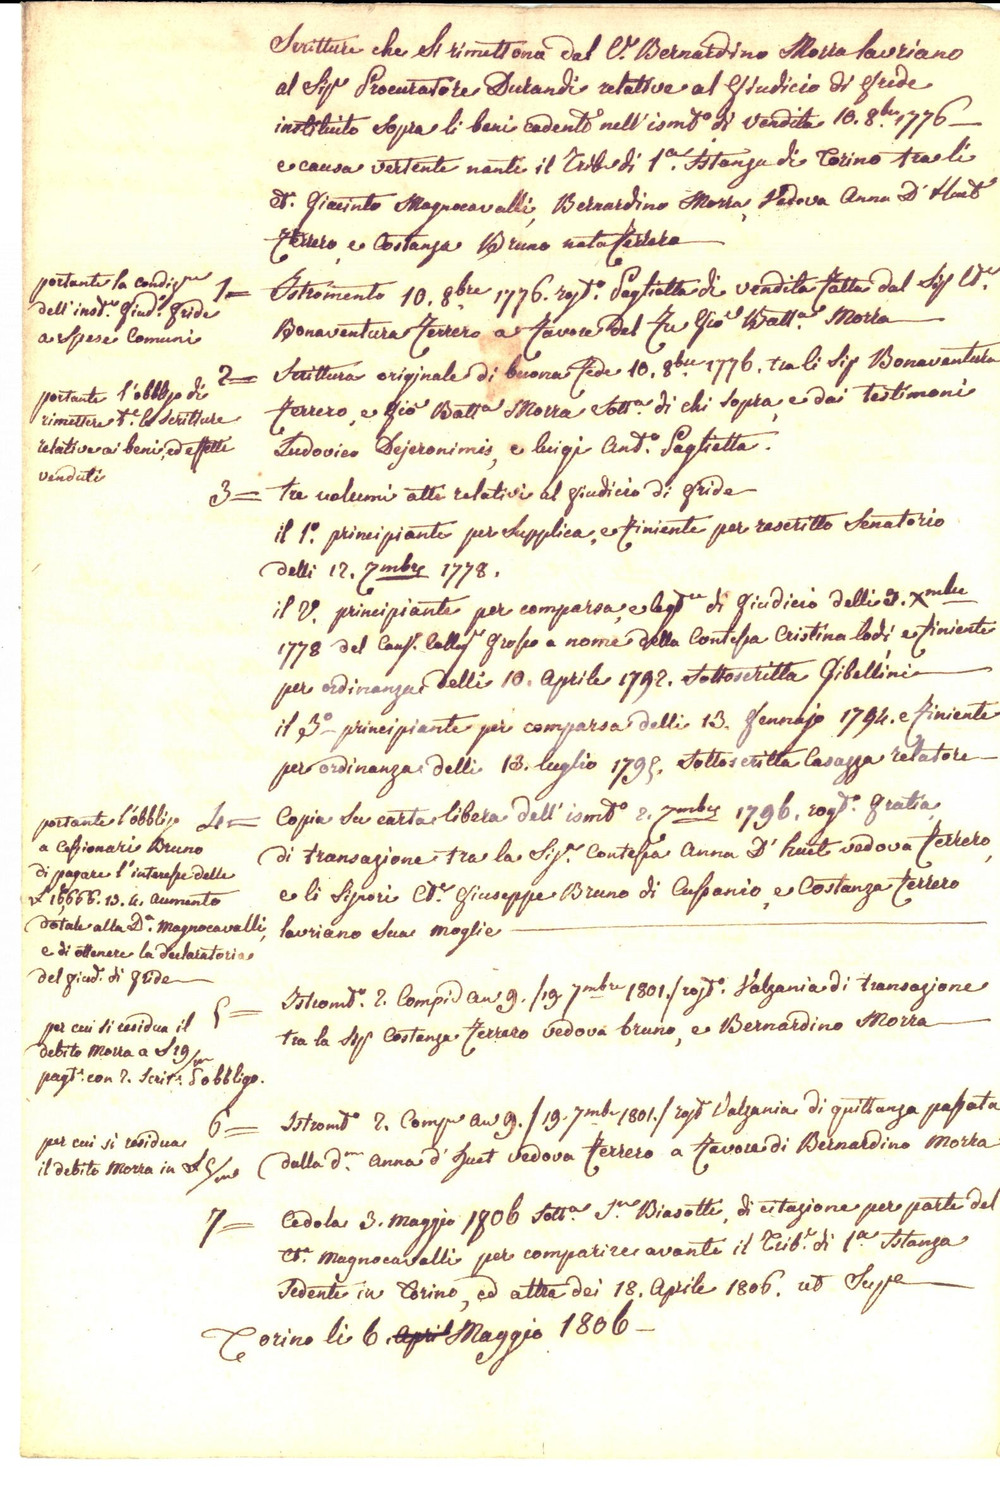 Scritture che si rimettono dal C.r Bernardino Morra Lauriano
al Sig.r Procuratore Durandi relative al Giudicio di gride
instituito sopra li beni cadenti nell'ism.to di vendita 10. 8.bre 1776 —
e causa vertente nanti il Trib.le di 1.a Istanza di Torino tra li
Giacinto Magnocavalli, Bernardino Morra, Vedova Anna D'Huet
Ferrero, e Costanza Bruno nata Ferrero —
portante la condiz.ne
dell'inst.ne Giud.o gride
a spese comuni
1= Istromento 10. 8.bre 1776. rog.to Paglietta di vendita fatta dal Sig.r
Bonaventura Ferrero a favore del fu Gio. Batt.a Morra —
portante l'obbligo di
rimettere le scritture
relative ai beni, ed effetti
venduti
2= Scrittura originale di buona fede 10. 8.bre 1776. tra li Sig.ri Bonaventura
Ferrero, e Gio. Batt.a Morra sott.a di chi sopra, e dai testimoni
Ludovico Dejeronimis, e Luigi Ant.o Paglietta.
3= tre volumi atti relativi al giudicio di gride
il 1.o principiante per supplica, e finiente per rescritto Senatorio
delli 12. 7mbre 1778.
il 2.o principiante per comparsa, e di Giudicio delli 3. Xmbre
1778 del Caus. Colleg. Grosso a nome della Contessa Cristina Lodi, e finiente
per ordinanza delli 10. Aprile 1792. sottoscritta Gibellini —
il 3.o principiante per comparsa delli 13. Gennajo 1794. e finiente
per ordinanza delli 13. luglio 1795. sottoscritta Casazza relatore —
portante l'obbligo
a Cessionari Bruno
di pagare l'interesse delle
L. 16,666. 13. 4. aumento
dotale alla D.a Magnocavalli,
e di ottenere la declaratoria
del giud.o di gride —
4= Copia su carta libera dell'ism.to 2. 7mbre 1796. rog.to Gratia,
di transazione tra la Sig.ra Contessa Anna D'huet vedova Ferrero,
e li Signori Giuseppe Bruno di Cussanio, e Costanza Ferrero
lauriano sua moglie —
per cui si residua il
debito Morra a L 19/m
pag.li con 2. Scrit.e d'obbligo.
5= Istrom.to 2. Comp.re an 9. /19. 7mbre 1801./ rog.to Valzania di transazione
tra la Sig.ra Costanza Ferrero vedova bruno, e Bernardino Morra —
per cui si residua
il debito Morra in L 5/m
6= Istrom.to 2. Comp.re an 9. /19. 7mbre 1801./ rog.to Valzania di quittanza passata
dalla d.ma Anna d'huet vedova Ferrero a favore di Bernardino Morra
7= Cedola 3. Maggio 1806 sott.a Biasotti, di citazione per parte del
Magnocavalli per comparire avanti il Trib.le di 1.a Istanza
Sedente in Torino, ed altra dei 18. Aprile 1806. ut Supp.a —
Torino li 6. April Maggio 1806 —